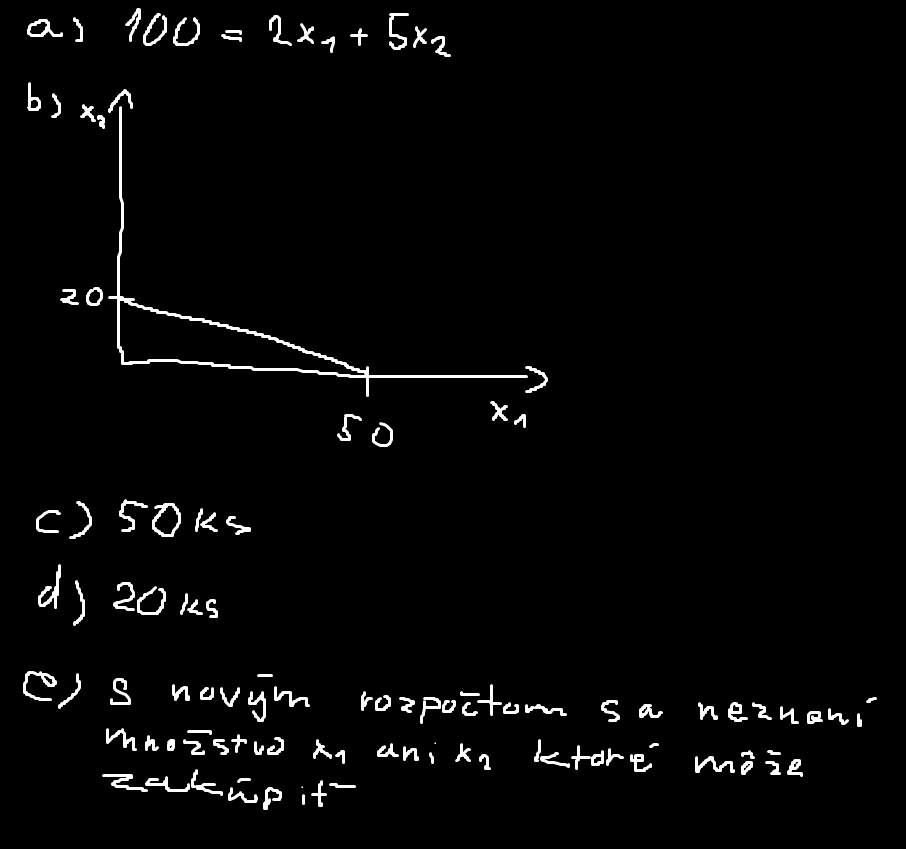 a) 100 = 2x₁ + 5x₂
b) x₂
20
50
x₁
c) 50 ks
d) 20 ks
e) S novým rozpočtom sa nezmení
množstvo x₁ ani x₂ ktoré môže
zakúpiť